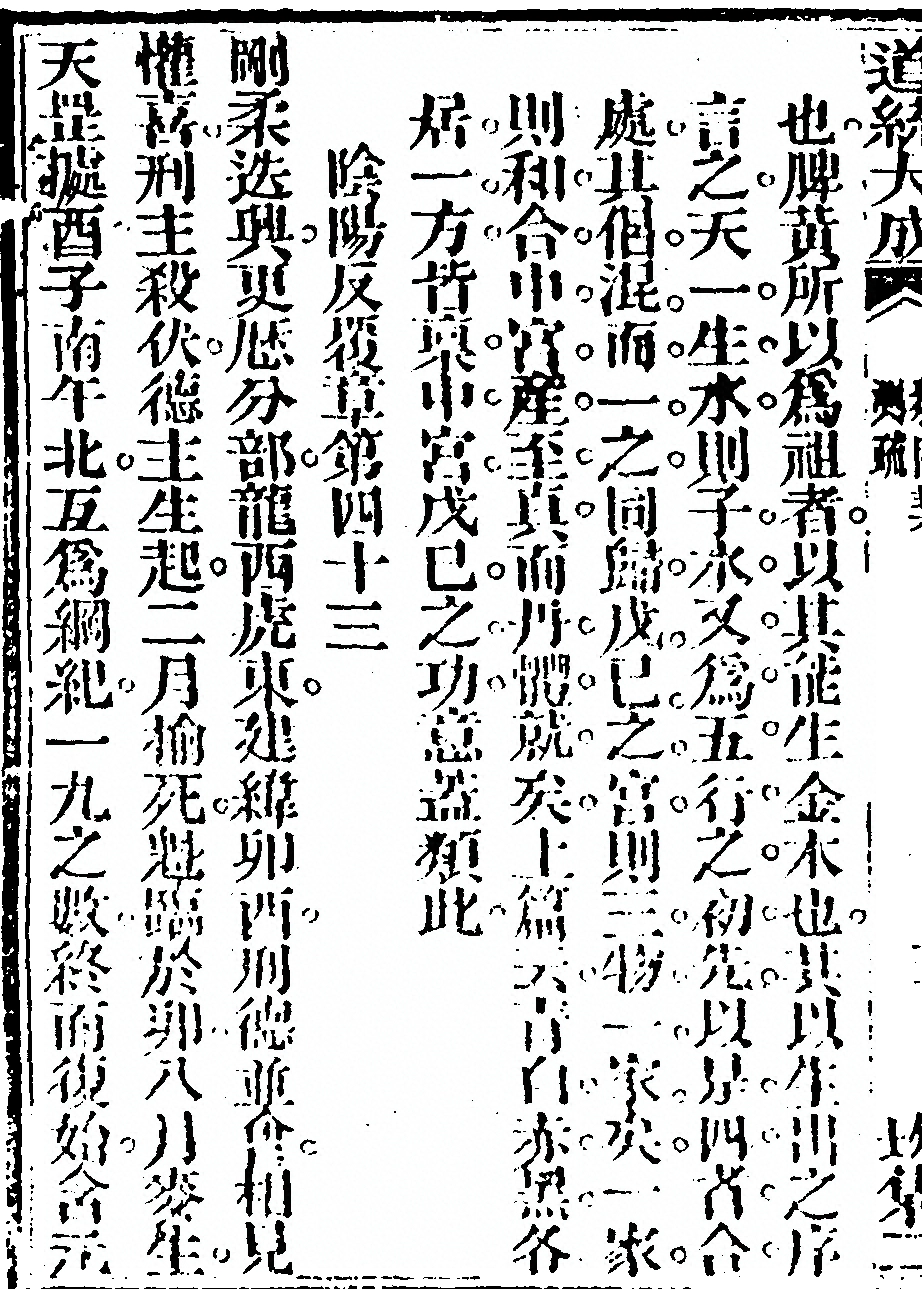 道統大成
測疏
也脾黃所以爲祖者以其能生金木也其以生出之序
言之天一生水則子水又爲五行之初先以是四者合
處其個混而一之同歸戊巳之宮則三物一家矣一家
則和合中宮產至真而丹體就矣上篇云青白赤黑各
居一方皆稟中宮戊巳之功意蓋類此
陰陽反覆章第四十三
剛柔迭興更歷分部龍西虎東建緯卯酉刑德並會相見
懽喜刑主殺伏德主生起二月榆死魁臨於卯八月麥生
天罡據酉子南午北互爲綱紀一九之數終而復始含元